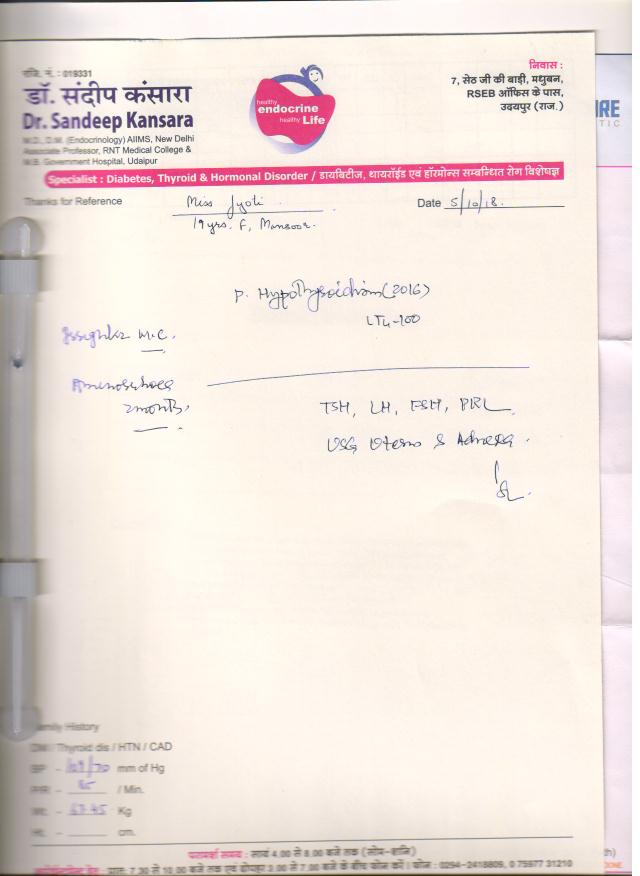 रजि. नं. : 019331
डॉ. संदीप कंसारा
Dr. Sandeep Kansara
M.D., D.M. (Endocrinology) AIIMS, New Delhi
Associate Professor, RNT Medical College &
M.B. Government Hospital, Udaipur
healthy
endocrine
healthy Life
निवास :
7, सेठ जी की बाड़ी, मधुबन,
RSEB ऑफिस के पास,
उदयपुर (राज.)
Specialist : Diabetes, Thyroid & Hormonal Disorder / डायबिटीज, थायरॉईड एवं हॉरमोन्स सम्बन्धित रोग विशेषज्ञ
Thanks for Reference
Miss Jyoti
Date 5/10/18.
19 yrs. F,
P. Hypothyroidism (2016)
LT4-100
M.C.
2 months
TSH, LH, FSH, PRL
USG Uterus & Adnexa
Family History
DM / Thyroid dis / HTN / CAD
BP - mm of Hg
/ Min.
Wt. - Kg
Ht. - cm.
परामर्श समय : सायं 4.00 से 8.00 बजे तक (सोम-शनि)
प्रातः 7.30 से 10.00 बजे तक एवं दोपहर 3.00 से 7.00 बजे के बीच फोन करें। फोन : 0294-2418809, 0 75977 31210